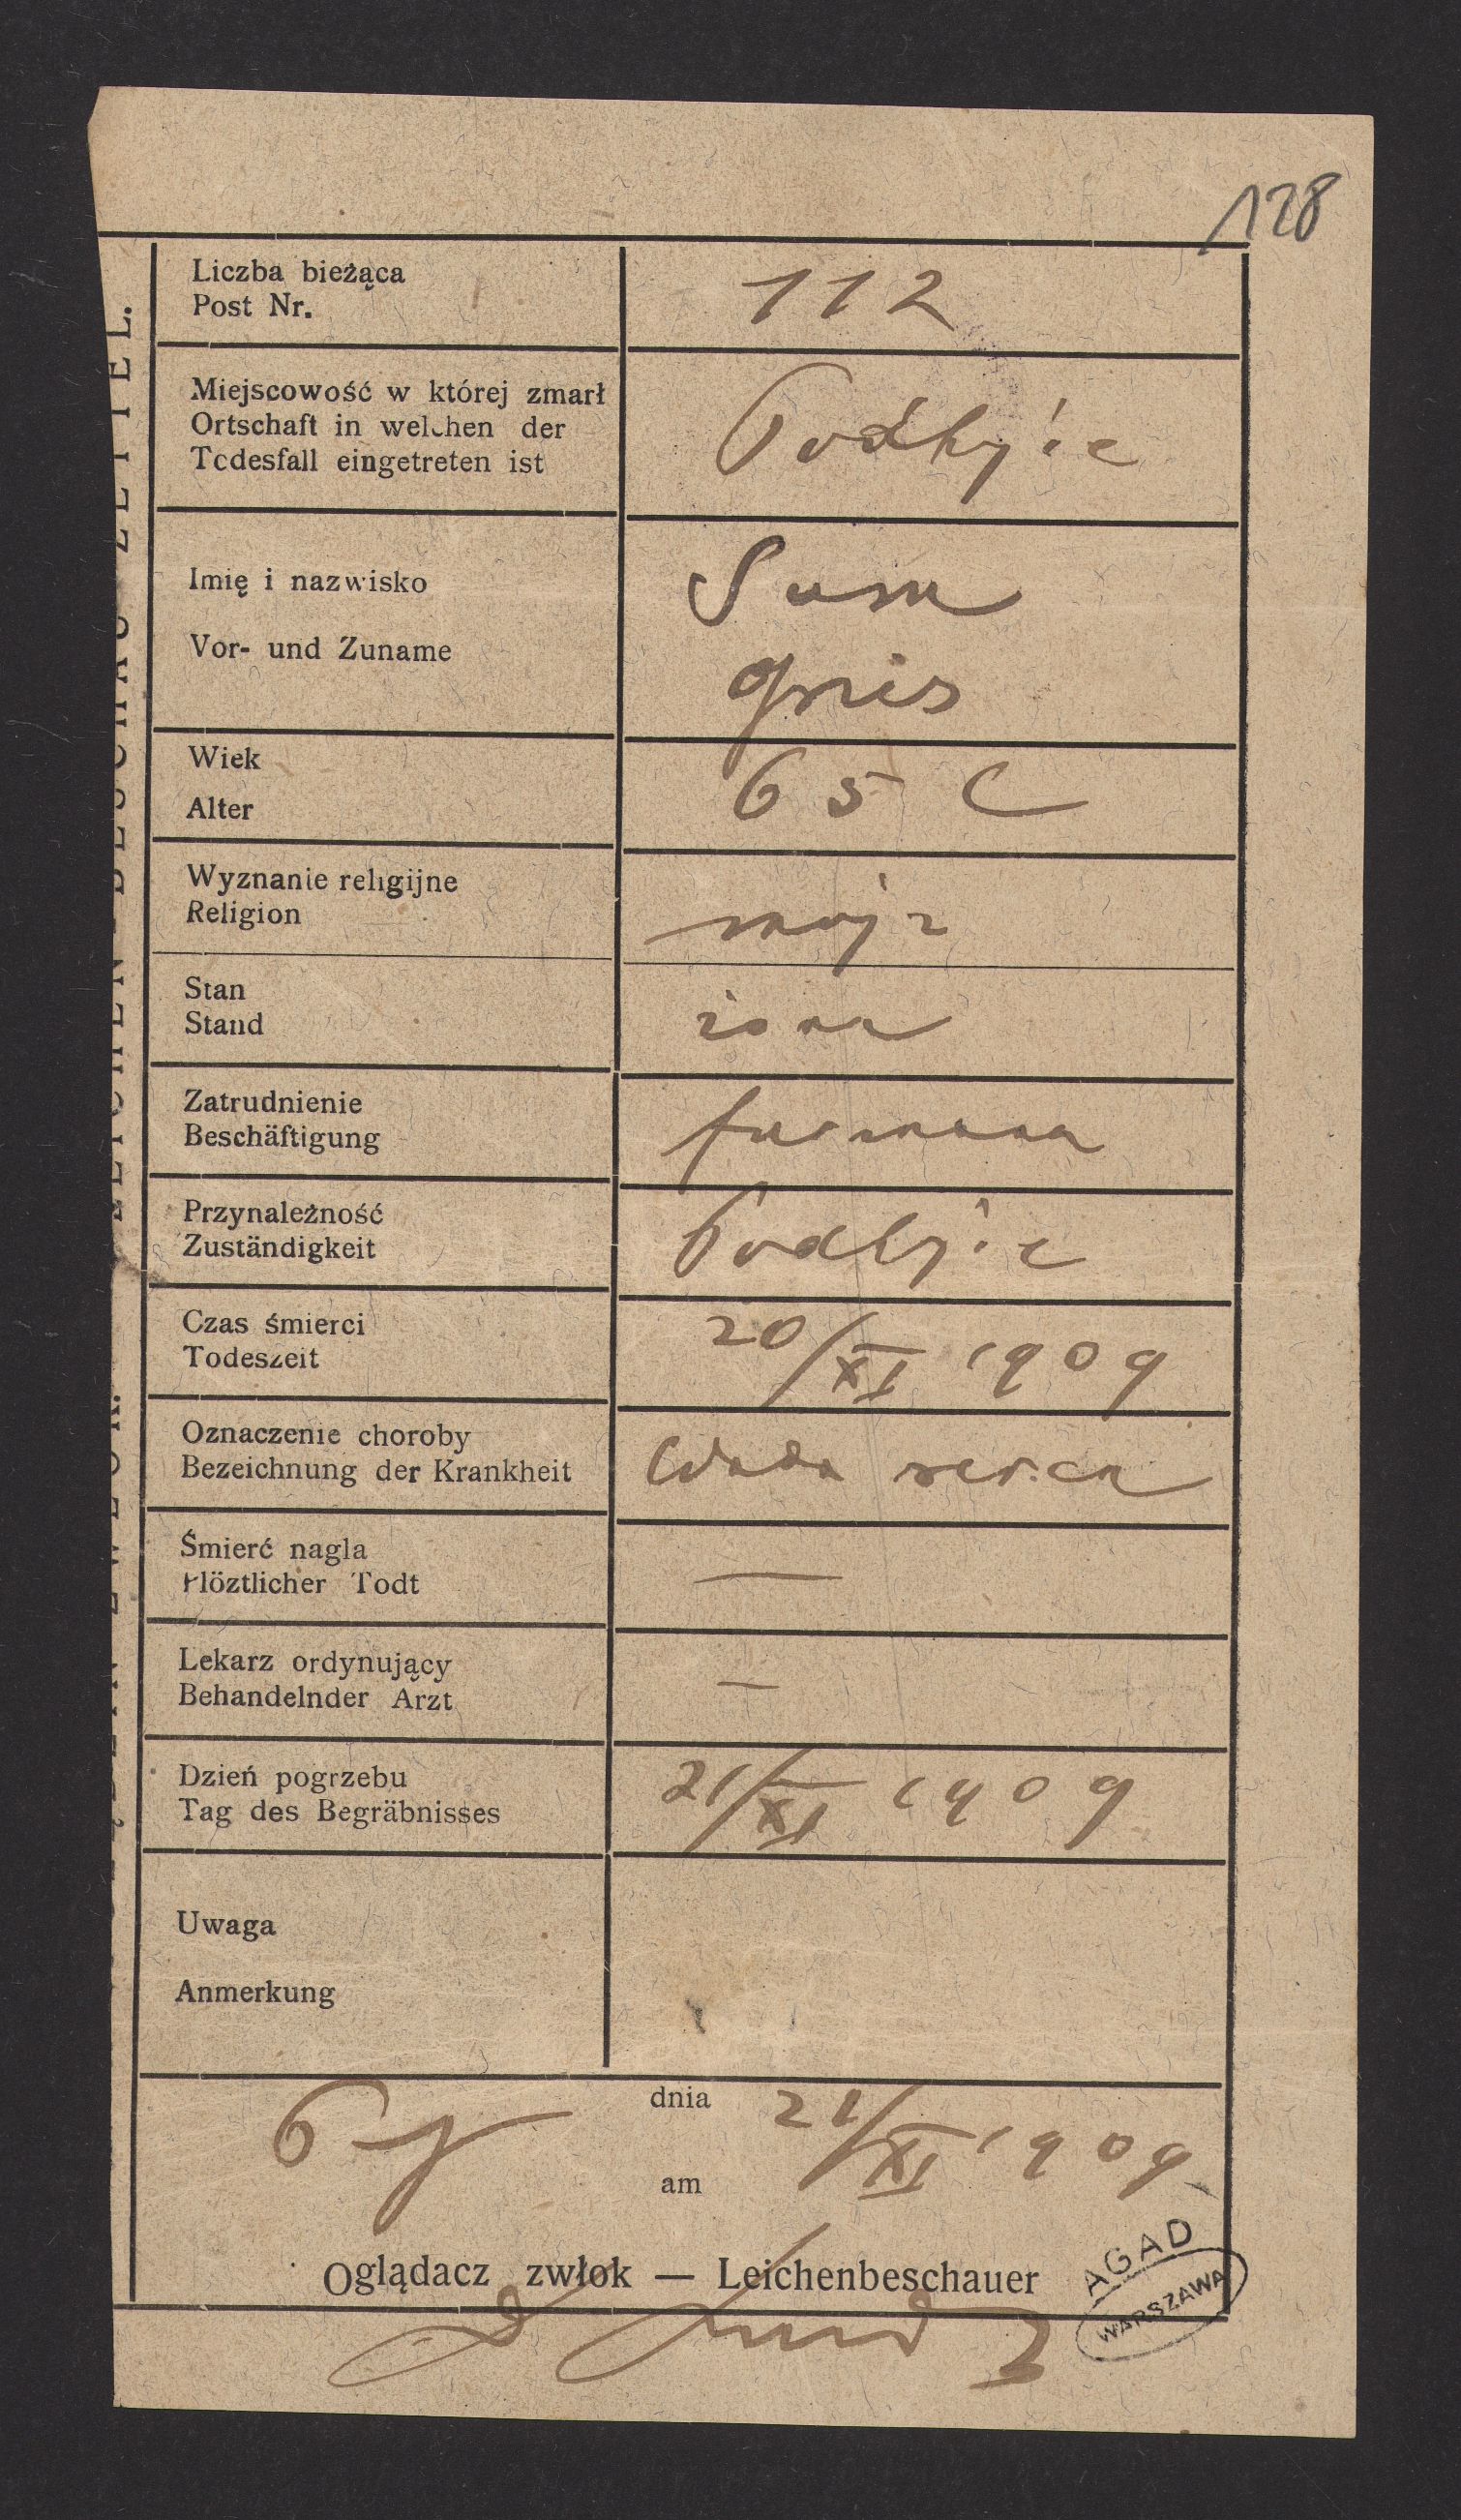 128
Liczba bieżąca
Post Nr.
112
Miejscowość w której zmarł
Ortschaft in welchen der
Todesfall eingetreten ist
Imię i nazwisko
Vor- und Zuname
Wiek
Alter
65
Wyznanie religijne
Religion
mojż
Stan
Stand
żona
Zatrudnienie
Beschäftigung
furmana
Przynależność
Zuständigkeit
Czas śmierci
Todeszeit
20/XI 1909
Oznaczenie choroby
Bezeichnung der Krankheit
Wada serca
Śmierć nagla
Plöztlicher Todt
—
Lekarz ordynujący
Behandelnder Arzt
—
Dzień pogrzebu
Tag des Begräbnisses
21/XI 1909
Uwaga
Anmerkung
dnia
am
21/XI 1909
Oglądacz zwłok — Leichenbeschauer
AGAD
WARSZAWA